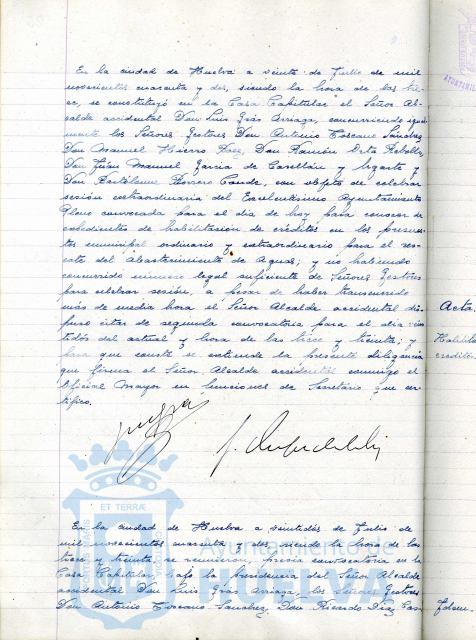 En la ciudad de Huelva a veinte de Julio de mil
novecientos cuarenta y dos, siendo la hora de las trece,
se constituyó en la Casa Capitular el Señor Al-
calde accidental Don Luis Gras Arriaga, concurriendo igual
mente los Señores Gestores Don Antonio Toscano Sánchez,
Don Manuel Hierro Don Ramón
Don Juan Manuel Garcia de Castellán y Ugarte y
Don Bartolomé Borrero Conde, con objeto de celebrar
sesión extraordinaria del Excelentísimo Ayuntamiento
Pleno convocada para el dia de hoy para conocer de
expedientes de habilitacion de créditos en los presupues-
tos municipal ordinario y extraordinario para el res-
cate del Abastecimiento de Aguas; y no habiendo
concurrido número legal suficiente de Señores Gestores
para celebrar sesión, a pesar de haber transcurrido
más de media hora el Señor Alcalde accidental dis-
puso citar de segunda convocatoria para el dia vein
tidós del actual y hora de las trece y treinta; y
para que conste se extiende la presente diligencia
que firma el Señor Alcalde accidental conmigo el
Oficial Mayor en funciones de Secretario que cer-
tifico.
Acta.
ET TERRÆ
Ayuntamiento de
HUELVA
En la ciudad de Huelva a veintidós de Julio de
mil novecientos cuarenta y dos siendo la hora de las
trece y treinta, se reunieron previa convocatoria en la
Casa Capitular bajo la Presidencia del Señor Alcalde
accidental Don Luis Gras Arriaga, los Señores Gestores
Don Antonio Toscano Sanchez, Don Ricardo Diaz
Idem.